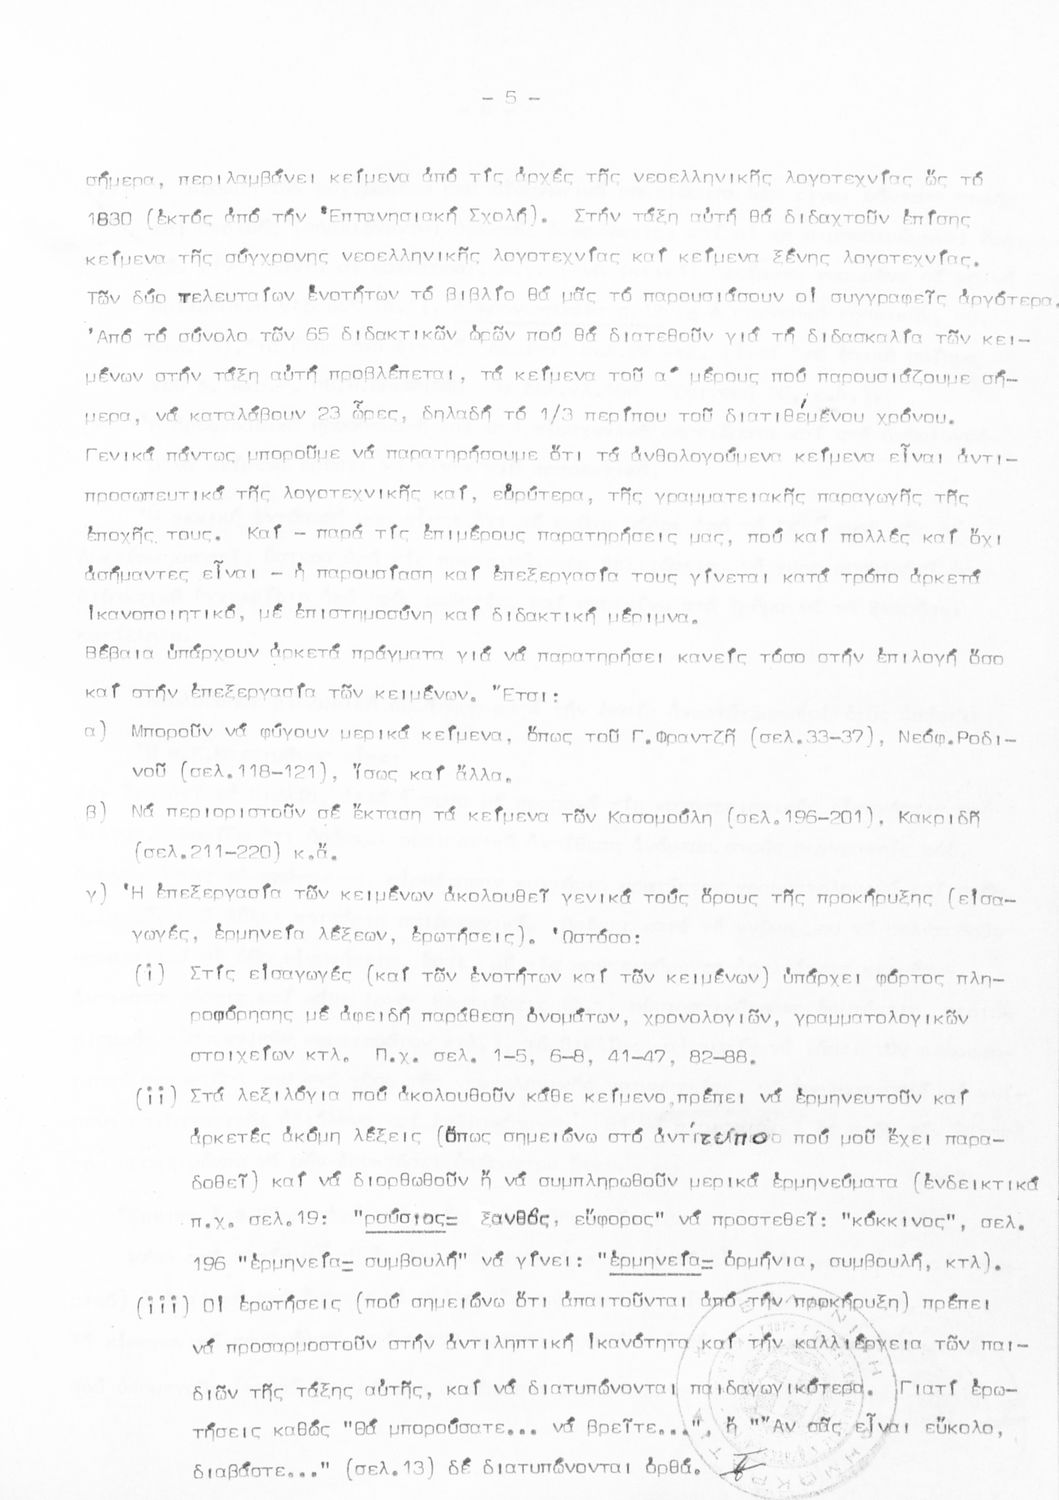 - 5 -
σήμερα, περιλαμβάνει κείμενα ἀπό τίς ἀρχές τῆς νεοελληνικῆς λογοτεχνίας ὥς τό
1830 (ἐκτός ἀπό τήν Ἑπτανησιακή Σχολή). Στήν τάξη αὐτή θά διδαχτοῦν ἐπίσης
κείμενα τῆς σύγχρονης νεοελληνικῆς λογοτεχνίας καί κείμενα ξένης λογοτεχνίας.
Τῶν δύο τελευταίων ἑνοτήτων τό βιβλίο θά μᾶς τό παρουσιάσουν οἱ συγγραφεῖς ἀργότερα.
Ἀπό τό σύνολο τῶν 65 διδακτικῶν ὡρῶν πού θά διατεθοῦν γιά τή διδασκαλία τῶν κει-
μένων στήν τάξη αὐτή προβλέπεται, τά κείμενα τοῦ α΄ μέρους πού παρουσιάζουμε σή-
μερα, νά καταλάβουν 23 ὧρες, δηλαδή τό 1/3 περίπου τοῦ διατιθέμένου χρόνου.
Γενικά πάντως μποροῦμε νά παρατηρήσουμε ὅτι τά ἀνθολογούμενα κείμενα εἶναι ἀντι-
προσωπευτικά τῆς λογοτεχνικῆς καί, εὐρύτερα, τῆς γραμματειακῆς παραγωγῆς τῆς
ἐποχῆς τους. Καί - παρά τίς ἐπιμέρους παρατηρήσεις μας, πού καί πολλές καί ὄχι
ἀσήμαντες εἶναι - ἡ παρουσίαση καί ἐπεξεργασία τους γίνεται κατά τρόπο ἀρκετά
ἱκανοποιητικό, μέ ἐπιστημοσύνη καί διδακτική μέριμνα.
Βέβαια ὑπάρχουν ἀρκετά πράγματα γιά νά παρατηρήσει κανείς τόσο στήν ἐπιλογή ὅσο
καί στήν ἐπεξεργασία τῶν κειμένων. Ἔτσι:
α) Μποροῦν νά φύγουν μερικά κείμενα, ὅπως τοῦ Γ.Φραντζῆ (σελ.33-37), Νεόφ.Ροδι-
νοῦ (σελ.118-121), ἴσως καί ἄλλα.
β) Νά περιοριστοῦν σέ ἔκταση τά κείμενα τῶν Κασομούλη (σελ.196-201), Κακριδῆ
(σελ.211-220) κ.ἄ.
γ) Ἡ ἐπεξεργασία τῶν κειμένων ἀκολουθεῖ γενικά τούς ὅρους τῆς προκήρυξης (εἰσα-
γωγές, ἑρμηνεία λέξεων, ἐρωτήσεις). Ὡστόσο:
(i) Στίς εἰσαγωγές (καί τῶν ἑνοτήτων καί τῶν κειμένων) ὑπάρχει φόρτος πλη-
ροφόρησης μέ ἀφειδή παράθεση ὀνομάτων, χρονολογιῶν, γραμματολογικῶν
στοιχείων κτλ. Π.χ. σελ. 1-5, 6-8, 41-47, 82-88.
(ii) Στά λεξιλόγια πού ἀκολουθοῦν κάθε κείμενο,πρέπει νά ἑρμηνευτοῦν καί
ἀρκετές ἀκόμη λέξεις (ὅπως σημειώνω στό ἀντίτυπο πού μοῦ ἔχει παρα-
δοθεῖ) καί νά διορθωθοῦν ἤ νά συμπληρωθοῦν μερικά ἑρμηνεύματα (ἐνδεικτικά
π.χ. σελ.19: "ρούσιος= ξανθός, εὔφορος" νά προστεθεῖ: "κόκκινος", σελ.
196 "ἑρμηνεία= συμβουλή" νά γίνει: "ἑρμηνεία= ὁρμήνια, συμβουλή, κτλ).
(iii) Οἱ ἐρωτήσεις (πού σημειώνω ὅτι ἀπαιτοῦνται ἀπό τήν προκήρυξη) πρέπει
νά προσαρμοστοῦν στήν ἀντιληπτική ἱκανότητα καί τήν καλλιέργεια τῶν παι-
διῶν τῆς τάξης αὐτῆς, καί νά διατυπώνονται παιδαγωγικότερα. Γιατί ἐρω-
τήσεις καθώς "Θά μπορούσατε... νά βρεῖτε...", ἤ "Ἄν σᾶς εἶναι εὔκολο,
διαβάστε..." (σελ.13) δέ διατυπώνονται ὀρθά.